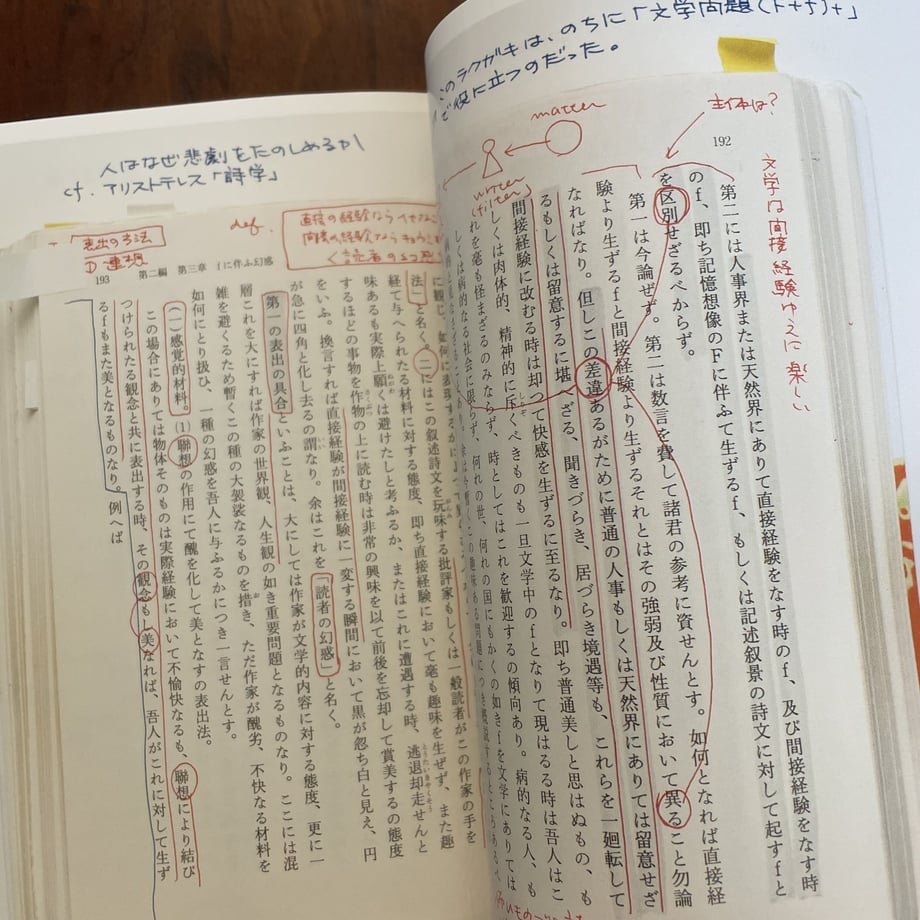 このラクガキは、のちに「文学問題(F+f)+」
で役に立つのだった。
主体は?
matter
writer
(filter)
192
文学は間接経験ゆえに楽しい
第二には人事界または天然界にありて直接経験をなす時のf、及び間接経験をなす時
のf、即ち記憶想像のFに伴ふて生ずるf、もしくは記述叙景の詩文に対して起すfと
を区別せざるべからず。
第一は今論ぜず。第二は数言を費して諸君の参考に資せんとす。如何となれば直接経
験より生ずるfと間接経験より生ずるそれとはその強弱及び性質において異ること勿論
なればなり。但しこの差違あるがために普通の人事もしくは天然界にありては留意せざ
るもしくは留意するに堪へざる、聞きづらき、居づらき境遇等も、これらを一廻転して
間接経験に改むる時は却つて快感を生ずるに至るなり。即ち普通美しと思はぬもの、も
しくは肉体的、精神的に斥くべきものも一旦文学中のfとなりて現はるる時は吾人はこ
れを毫も怪まざるのみならず、時としてはこれを歓迎するの傾向あり。病的なる人、も
しくは病的なる社会に限らず、何れの世、何れの国にもかくの如きfを文学にありては
人はなぜ悲劇をたのしめるか
cf. アリストテレス「詩学」
def.
直接の経験なら
間接の経験なら
く読者の幻惑
表出の方法
①連想
193 第二編 第三章 fに伴ふ幻惑
法」と名く。(二)にはこの叙述詩文を玩味する批評家もしくは一般読者がこの作家の手を
経て与へられたる材料に対する態度、即ち直接経験において毫も趣味を生ぜず、また趣
味あるも実際上願くは避けたしと考ふるか、またはこれに遭遇する時、逃退却走せんと
するほどの事物を作物の上に読む時は非常の興味を以て前後を忘却して賞美するの態度
をいふ。換言すれば直接経験が間接経験に一変する瞬間において黒が忽ち白と見え、円
が急に四角と化し去るの謂なり。余はこれを「読者の幻惑」と名く。
第一の表出の具合といふことは、大にしては作家が文学的内容に対する態度、更に一
層これを大にすれば作家の世界観、人生観の如き重要問題となるものなり。ここには混
雑を避くるため暫くこの種の大袈裟なるものを措き、ただ作家が醜劣、不快なる材料を
如何にとり扱ひ、一種の幻惑を吾人に与ふるかにつき一言せんとす。
(一)感覚的材料。(1)聯想の作用にて醜を化して美となすの表出法。
この場合にありては物体そのものは実際経験において不愉快なるも、聯想により結び
つけられたる観念と共に表出する時、その観念もし美なれば、吾人がこれに対して生ず
るfもまた美となるものなり。例へば